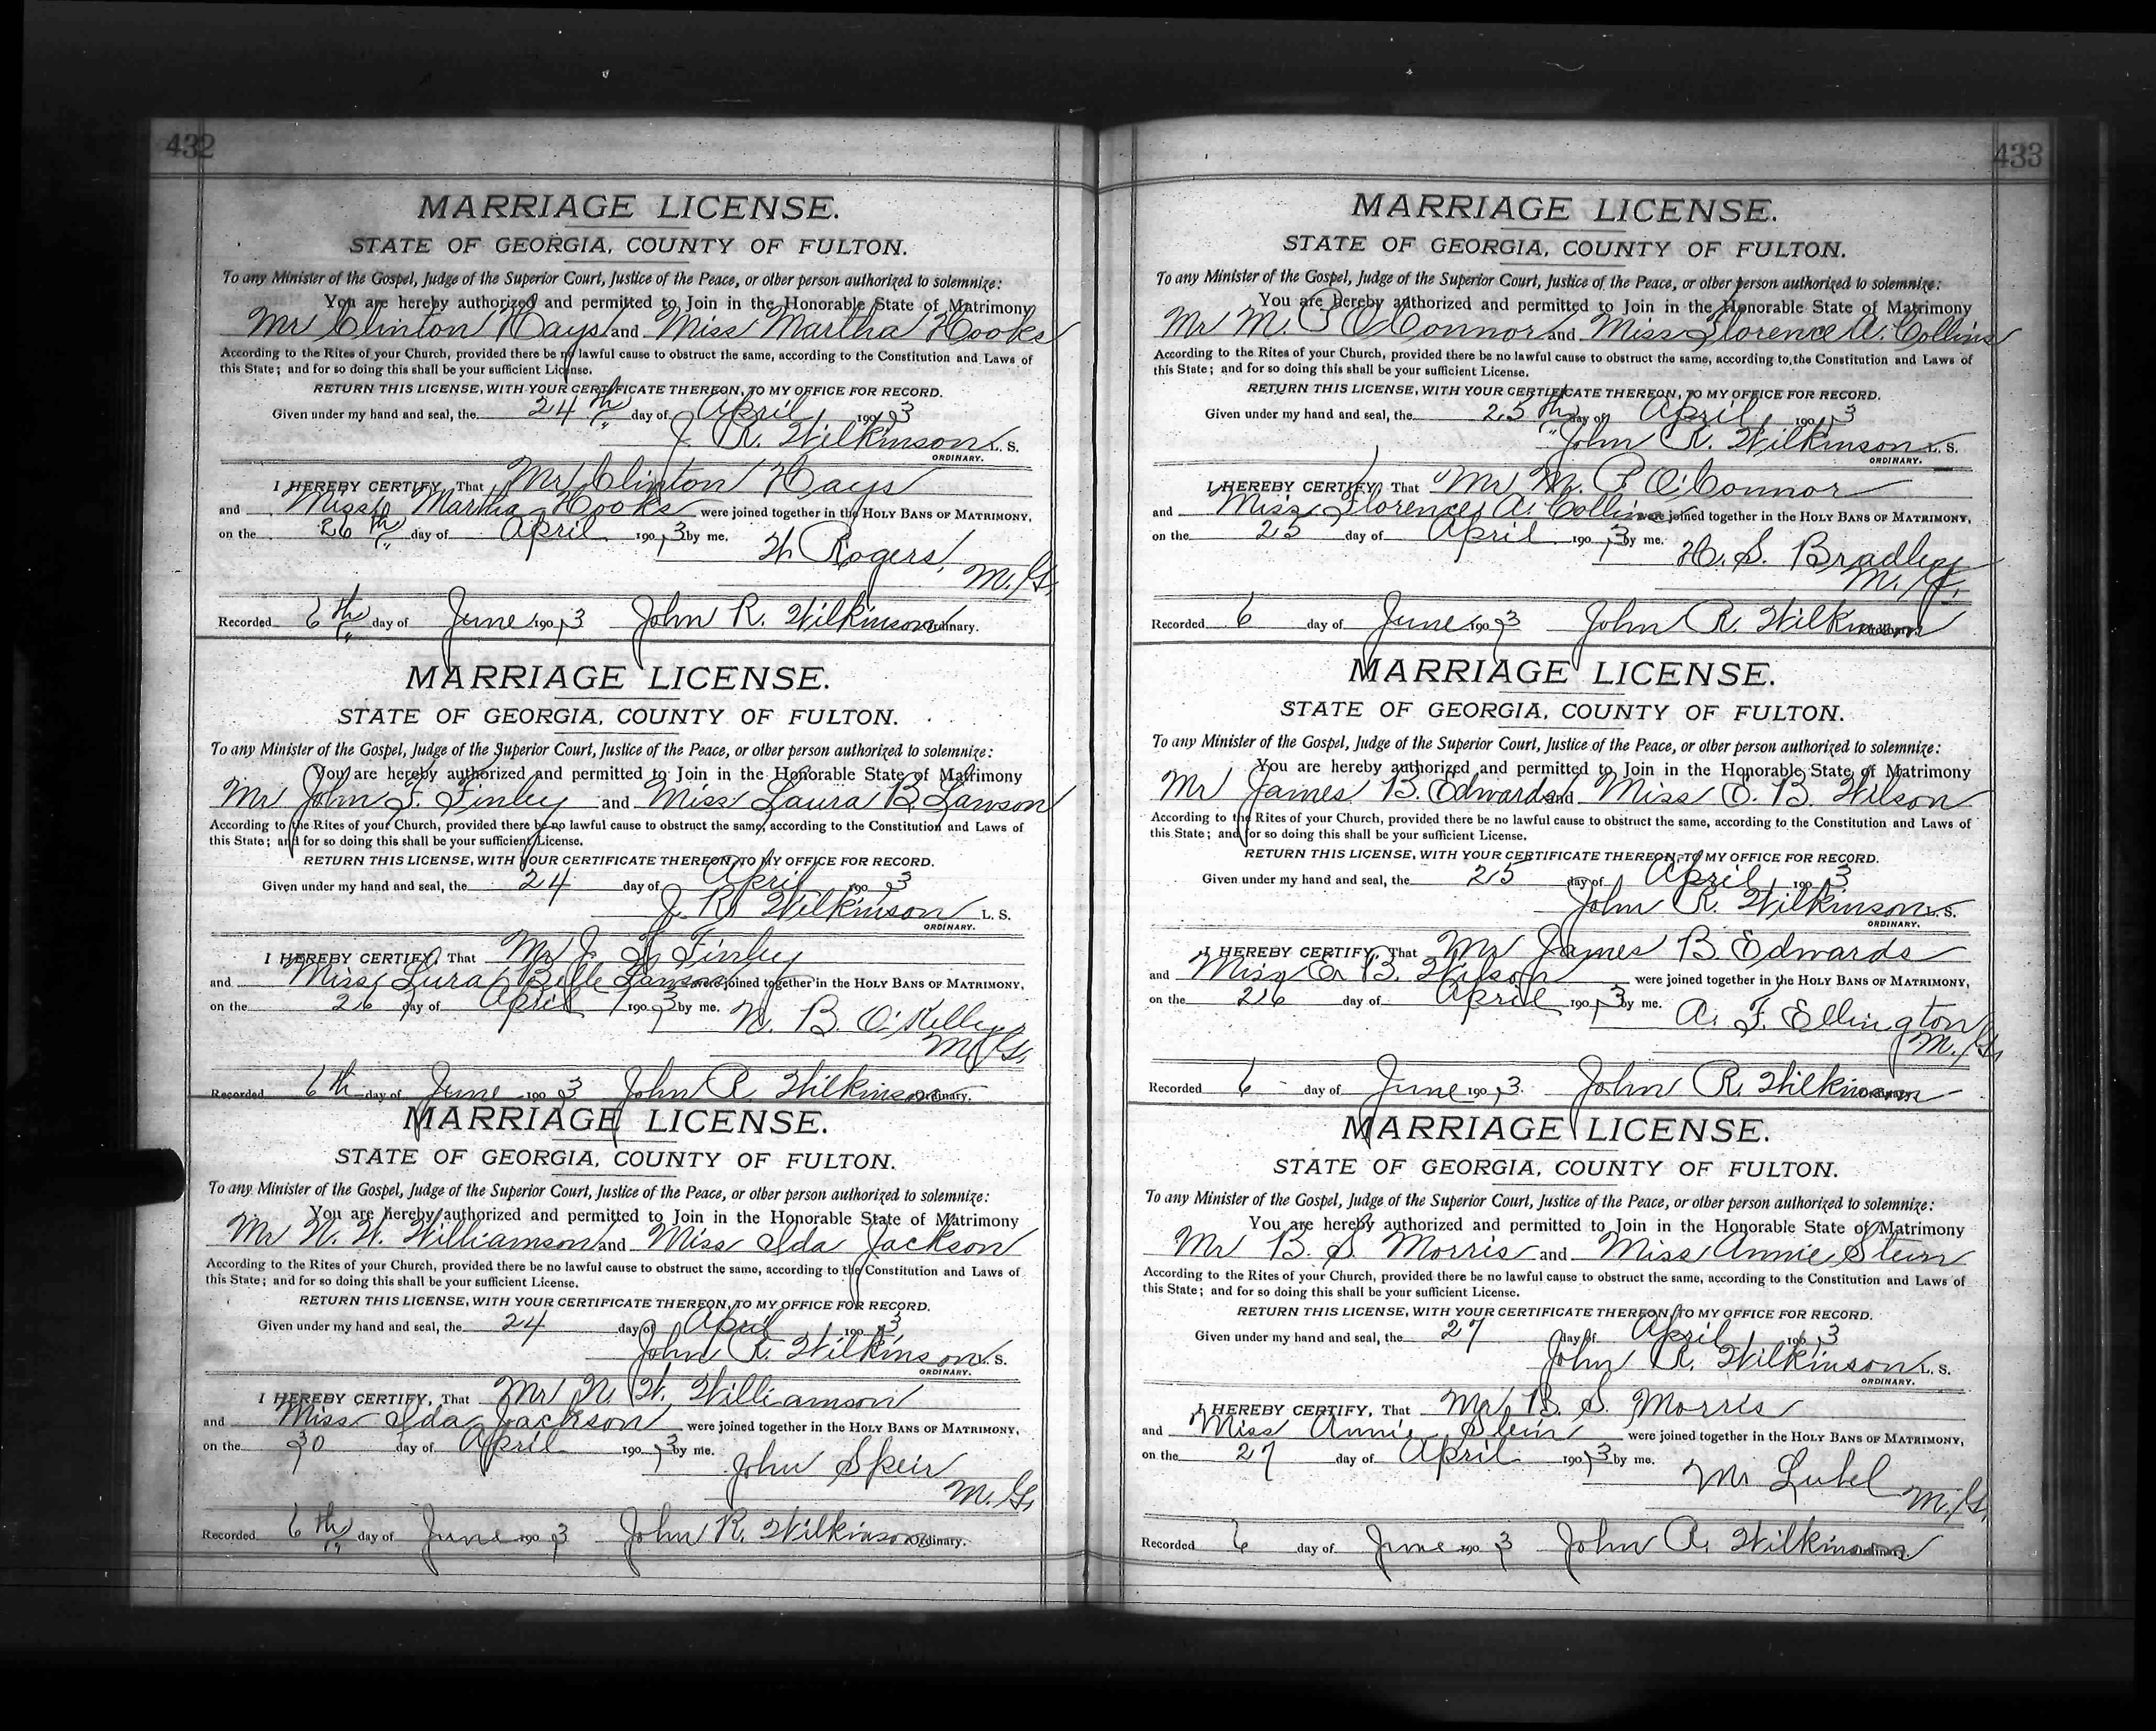 432
MARRIAGE LICENSE.
STATE OF GEORGIA, COUNTY OF FULTON.
To any Minister of the Gospel, Judge of the Superior Court, Justice of the Peace, or other person authorized to solemnize:
You are hereby authorized and permitted to Join in the Honorable State of Matrimony
Mr Clinton Hays and Miss Martha Hooks
According to the Rites of your Church, provided there be no lawful cause to obstruct the same, according to the Constitution and Laws of
this State; and for so doing this shall be your sufficient License.
RETURN THIS LICENSE, WITH YOUR CERTIFICATE THEREON, TO MY OFFICE FOR RECORD.
Given under my hand and seal, the 24th day of April 1903
J R. Wilkinson L. S.
ORDINARY.
I HEREBY CERTIFY, That Mr Clinton Hays
and Miss Martha Hooks were joined together in the HOLY BANS OF MATRIMONY,
on the 26th day of April 1903 by me.
W. Rogers,
M. G.
Recorded 6th day of June 1903 John R. Wilkinson Ordinary.
MARRIAGE LICENSE.
STATE OF GEORGIA, COUNTY OF FULTON.
To any Minister of the Gospel, Judge of the Superior Court, Justice of the Peace, or other person authorized to solemnize:
You are hereby authorized and permitted to Join in the Honorable State of Matrimony
Mr John F. Finley and Miss Laura B. Lawson
According to the Rites of your Church, provided there be no lawful cause to obstruct the same, according to the Constitution and Laws of
this State; and for so doing this shall be your sufficient License.
RETURN THIS LICENSE, WITH YOUR CERTIFICATE THEREON, TO MY OFFICE FOR RECORD.
Given under my hand and seal, the 24 day of April 1903
J. R. Wilkinson L. S.
ORDINARY.
I HEREBY CERTIFY, That Mr J. F. Finley
and Miss Lura Belle Lawson were joined together in the HOLY BANS OF MATRIMONY,
on the 26 day of April 1903 by me.
N. B. O'Kelley
M. G.
Recorded 6th day of June 1903 John R. Wilkinson Ordinary.
MARRIAGE LICENSE.
STATE OF GEORGIA, COUNTY OF FULTON.
To any Minister of the Gospel, Judge of the Superior Court, Justice of the Peace, or other person authorized to solemnize:
You are hereby authorized and permitted to Join in the Honorable State of Matrimony
Mr N. W. Williamson and Miss Ida Jackson
According to the Rites of your Church, provided there be no lawful cause to obstruct the same, according to the Constitution and Laws of
this State; and for so doing this shall be your sufficient License.
RETURN THIS LICENSE, WITH YOUR CERTIFICATE THEREON, TO MY OFFICE FOR RECORD.
Given under my hand and seal, the 24 day of April 1903
John R. Wilkinson L. S.
ORDINARY.
I HEREBY CERTIFY, That Mr N. W. Williamson
and Miss Ida Jackson were joined together in the HOLY BANS OF MATRIMONY,
on the 30 day of April 1903 by me.
John Speir
M. G.
Recorded 6th day of June 1903 John R. Wilkinson Ordinary.
433
MARRIAGE LICENSE.
STATE OF GEORGIA, COUNTY OF FULTON.
To any Minister of the Gospel, Judge of the Superior Court, Justice of the Peace, or other person authorized to solemnize:
You are hereby authorized and permitted to Join in the Honorable State of Matrimony
Mr M. P O'Connor and Miss Florence A. Collins
According to the Rites of your Church, provided there be no lawful cause to obstruct the same, according to the Constitution and Laws of
this State; and for so doing this shall be your sufficient License.
RETURN THIS LICENSE, WITH YOUR CERTIFICATE THEREON, TO MY OFFICE FOR RECORD.
Given under my hand and seal, the 25th day of April, 1903
John R. Wilkinson L. S.
ORDINARY.
I HEREBY CERTIFY, That Mr M. P O'Connor
and Miss Florence A. Collins were joined together in the HOLY BANS OF MATRIMONY,
on the 25 day of April 1903 by me.
H. S. Bradley
M. G.
Recorded 6 day of June 1903 John R. Wilkinson Ordinary.
MARRIAGE LICENSE.
STATE OF GEORGIA, COUNTY OF FULTON.
To any Minister of the Gospel, Judge of the Superior Court, Justice of the Peace, or other person authorized to solemnize:
You are hereby authorized and permitted to Join in the Honorable State of Matrimony
Mr James B. Edwards and Miss E. B. Wilson
According to the Rites of your Church, provided there be no lawful cause to obstruct the same, according to the Constitution and Laws of
this State; and for so doing this shall be your sufficient License.
RETURN THIS LICENSE, WITH YOUR CERTIFICATE THEREON, TO MY OFFICE FOR RECORD.
Given under my hand and seal, the 25 day of April, 1903
John R. Wilkinson L. S.
ORDINARY.
I HEREBY CERTIFY, That Mr James B Edwards
and Miss E. B. Wilson were joined together in the HOLY BANS OF MATRIMONY,
on the 26 day of April 1903 by me.
A. F. Ellington
M. G.
Recorded 6 day of June 1903. John R. Wilkinson Ordinary.
MARRIAGE LICENSE.
STATE OF GEORGIA, COUNTY OF FULTON.
To any Minister of the Gospel, Judge of the Superior Court, Justice of the Peace, or other person authorized to solemnize:
You are hereby authorized and permitted to Join in the Honorable State of Matrimony
Mr B. S. Morris and Miss Annie Stein
According to the Rites of your Church, provided there be no lawful cause to obstruct the same, according to the Constitution and Laws of
this State; and for so doing this shall be your sufficient License.
RETURN THIS LICENSE, WITH YOUR CERTIFICATE THEREON, TO MY OFFICE FOR RECORD.
Given under my hand and seal, the 27 day of April, 1903
John R. Wilkinson L. S.
ORDINARY.
I HEREBY CERTIFY, That Mr B. S. Morris
and Miss Annie Stein were joined together in the HOLY BANS OF MATRIMONY,
on the 27 day of April 1903 by me.
M. G.
Recorded 6 day of June 1903 John R. Wilkinson Ordinary.